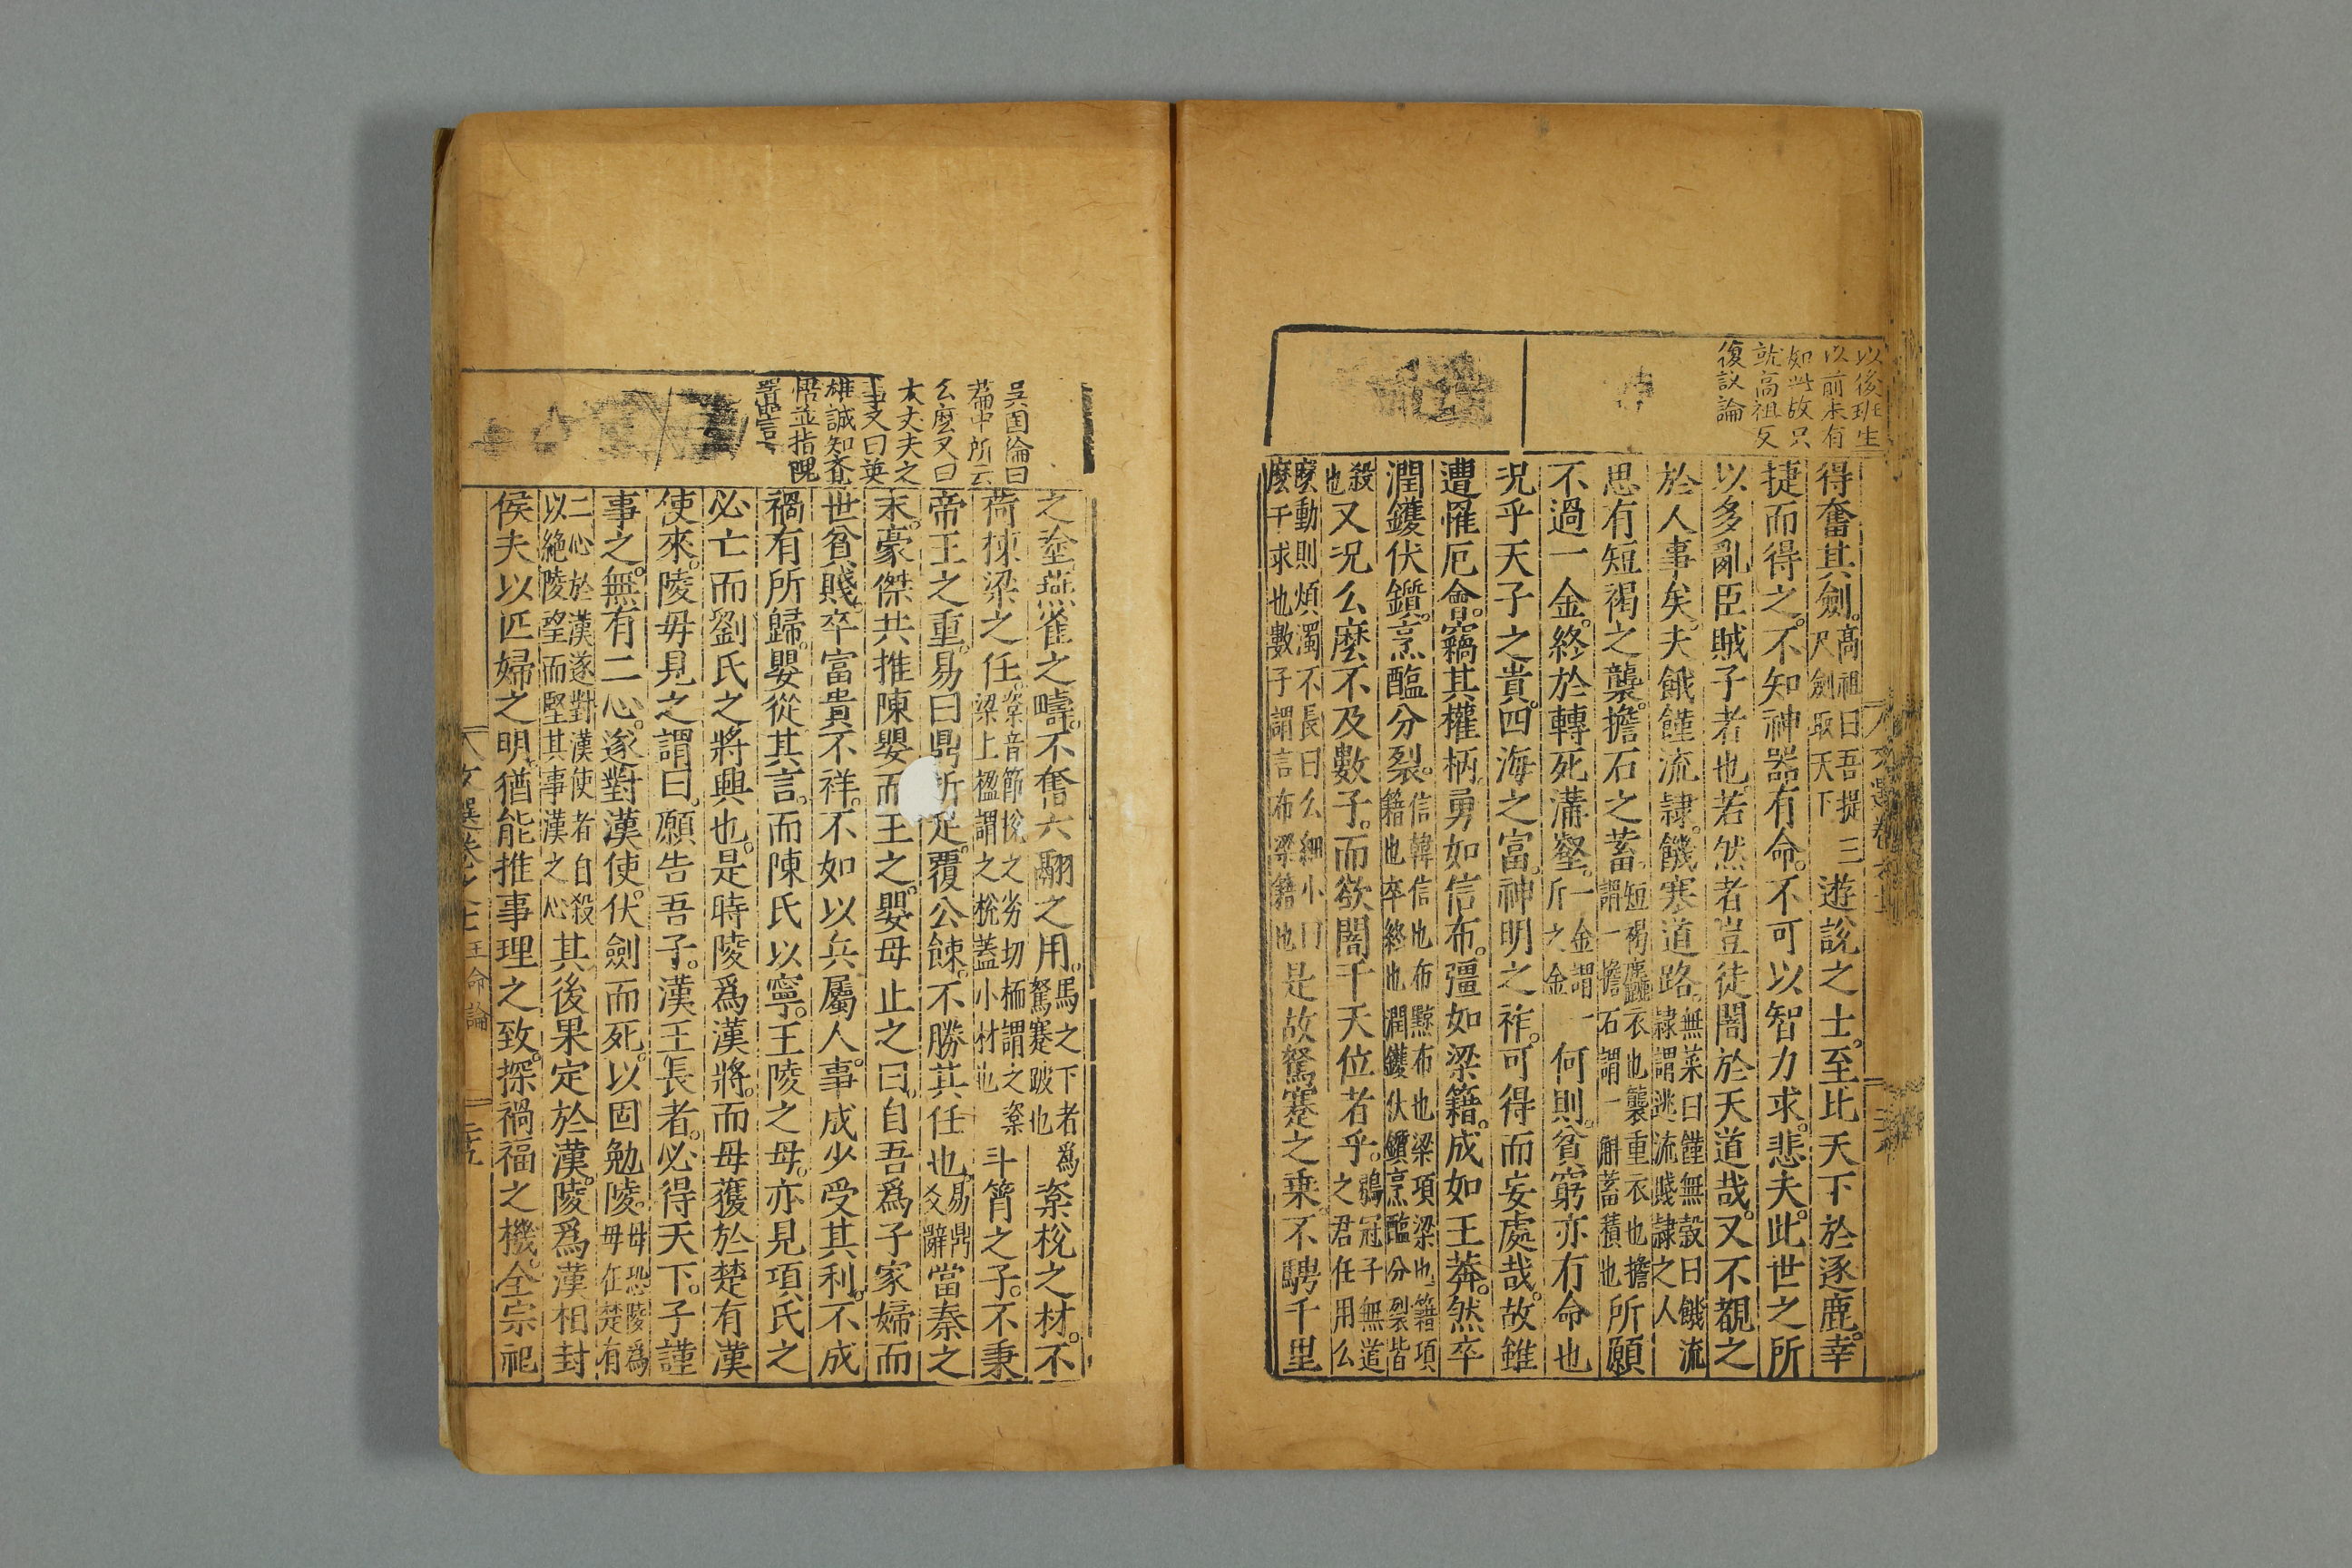 以後班生
以前未有
如此故只
就高祖反
復議論
得奮其劍。高祖曰吾提三尺劍取天下遊說之士。至比天下於逐鹿。幸
捷而得之。不知神器有命。不可以智力求。悲夫。此世之所
以多亂臣賊子者也。若然者豈徒闇於天道哉。又不覩之
於人事矣。夫餓饉流隷。饑寒道路。無菜曰饉無穀曰餓流隷謂逃流賤隷之人
思有短褐之襲。擔石之蓄。短褐麄衣也襲重衣也擔謂一擔石謂一斛蓄積也所願
不過一金。終於轉死溝壑。一金謂一斤之金何則。貧窮亦有命也
況乎天子之貴。四海之富。神明之祚。可得而妄處哉。故雖
遭罹厄會。竊其權柄。勇如信布。彊如梁籍。成如王莽。然卒
潤鑊伏鑕。烹醢分裂。信韓信也布黥布也梁項梁也籍項籍也卒終也潤鑊伏鑕烹醢分裂皆
殺也又況么麼不及數子。而欲闇千天位者乎。鶡冠子無道之君任用么
麼動則煩濁不長曰么細小曰麼千求也數子謂言布梁籍也是故駑蹇之乘不騁千里
吳國倫曰
篇中所云
么麼又曰
大丈夫之
事又曰英
雄誠知
並指隗
囂言
之塗燕雀之疇。不奮六翮之用。馬之下者爲駑蹇跛也楶棁之材。不
荷棟梁之任。楶音節棁之劣切栭謂之楶梁上楹謂之棁蓋小材也斗筲之子。不秉
帝王之重。易曰鼎折足。覆公餗。不勝其任也。易鼎爻辭當秦之
末。豪傑共推陳嬰而王之。嬰母止之曰。自吾爲子家婦而
世貧賤。卒富貴不祥。不如以兵屬人。事成少受其利。不成
禍有所歸。嬰從其言。而陳氏以寧。王陵之母。亦見項氏之
必亡而劉氏之將興也。是時陵爲漢將。而母獲於楚有漢
使來。陵母見之謂曰。願告吾子。漢王長者。必得天下。子謹
事之。無有二心。遂對漢使。伏劍而死。以固勉陵。母恐陵爲母在楚有
二心於漢遂對漢使者自殺以絕陵望而堅其事漢之心其後果定於漢。陵爲漢相封
侯夫以匹婦之明。猶能推事理之致。探禍福之機。全宗祀
文選卷之 王命論